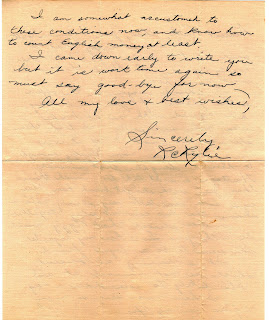 I am somewhat accustomed to
these conditions now, and know how
to count English money at least.
I came down early to write you
but it is work time again so
must say good-bye for now
All my love & best wishes,
Sincerely